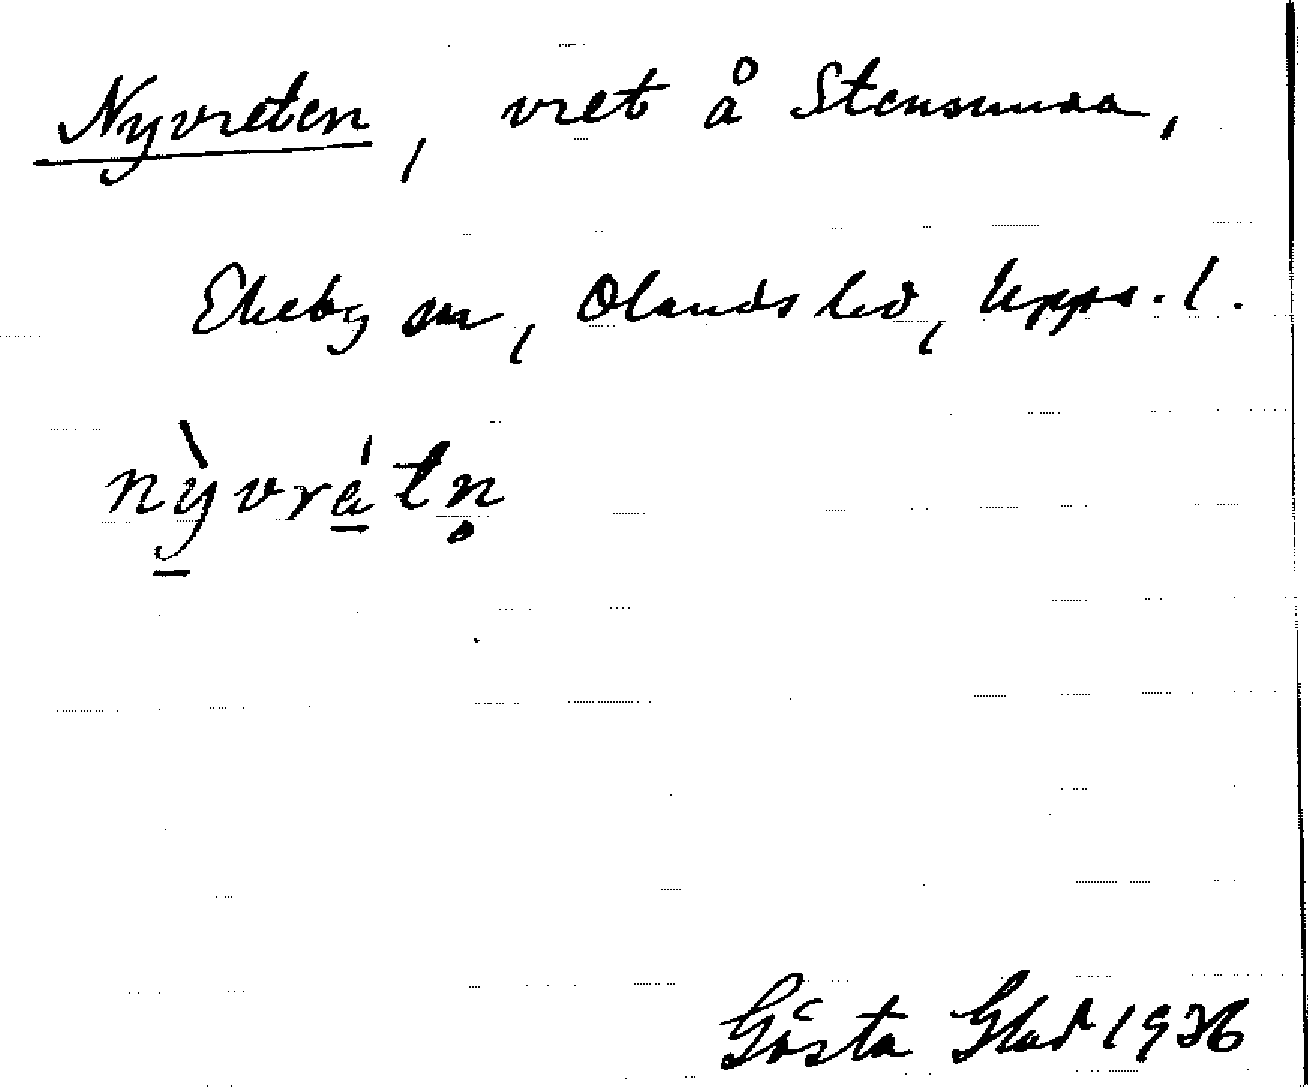 Nyvreten, vret å Stensunda,
Ekeby sn, Olands hd, Upps. l.
nỳvrétṇ
Gösta Glad 1936